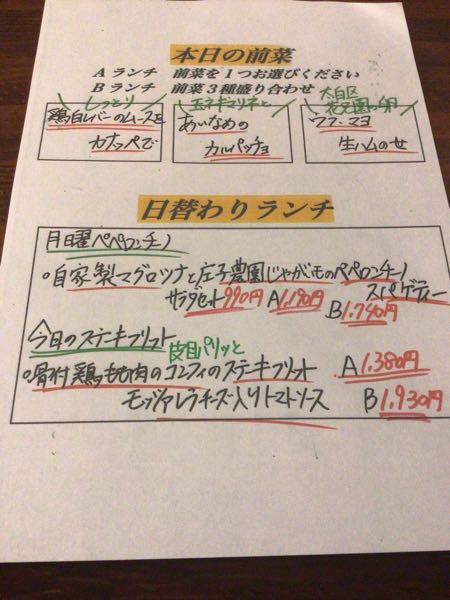 本日の前菜
Aランチ 前菜を1つお選びください
Bランチ 前菜3種盛り合わせ
しっとり
鶏白レバーのムースを
カナッペで
玉ネギマリネと
あいなめの
カルパッチョ
太白区
ウフ・マヨ
生ハムのせ
日替わりランチ
月曜ペペロンチーノ
○自家製マグロツナと庄子農園じゃがいものペペロンチーノ
スパゲティー
サラダセット990円 A1,190円 B1,740円
今日のステーキフリット
皮目パリッと
○骨付鶏もも肉のコンフィのステーキフリット A1,380円
モッツァレラチーズ入りトマトソース B1,930円